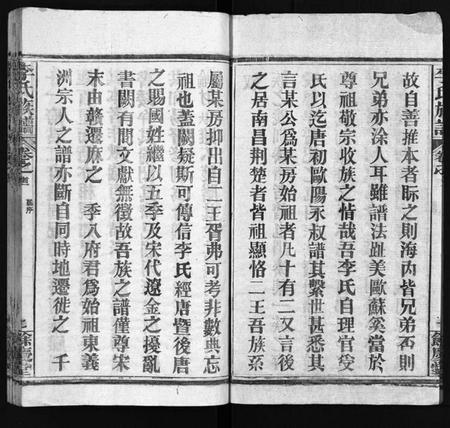 故自善推本者眎之則海內皆兄弟否則
兄弟亦涂人耳雖譜法趾美歐蘇奚當於
尊祖敬宗收族之恉哉吾李氏自理官受
氏以迄唐初歐陽永叔譜其繫世甚悉其
言某公爲某房始祖者凡十有二又言後
之居南昌荆楚者皆祖顯恪二王吾族系
屬某房抑出自二王胥弗可考非數典忘
祖也蓋闕疑斯可傳信李氏經唐暨後唐
之賜國姓繼以五季及宋代遼金之擾亂
書闕有間文獻無徵故吾族之譜僅尊宋
末由贛遷麻之 季八府君爲始祖東義
洲宗人之譜亦斷自同時地遷徙之 千
李氏族譜 卷首 總序 餘慶堂
李氏族譜 餘慶堂